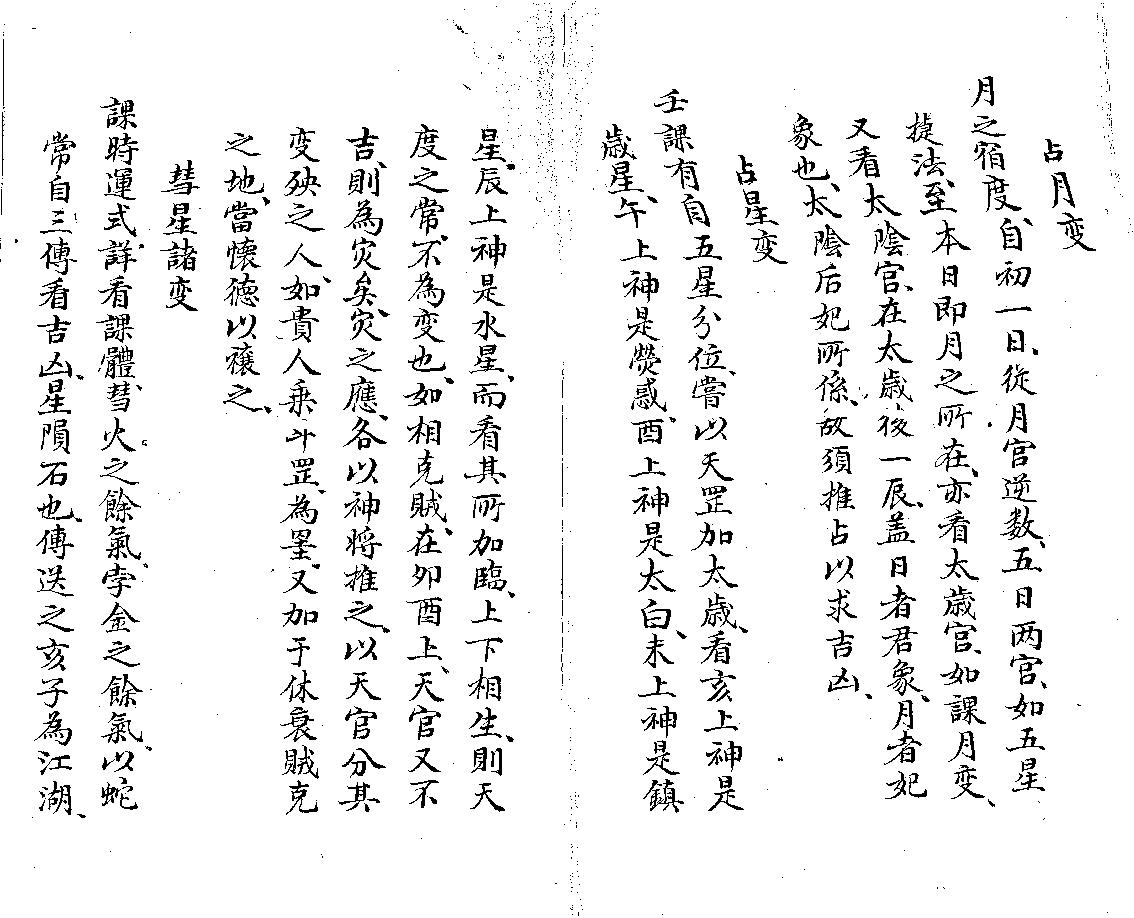 占月变
月之宿度、自初一日、從月宫逆数、五日两宫、如五星
捷法、至本日即月之所在、亦看太歲宫、如課月变、
又看太陰宫、在太歲後一辰、盖日者君象、月者妃
象也、太陰后妃所係、故須推占以求吉凶、
占星变
壬課有自五星分位、嘗以天罡加太歲、看亥上神是
歲星、午上神是熒惑、酉上神是太白、未上神是鎮
星、辰上神是水星、而看其所加臨、上下相生、則天
度之常、不為变也、如相克賊、在卯酉上、天官又不
吉、則為灾矣、灾之應、各以神将推之、以天官分其
变殃之人、如貴人乗斗罡、為墨、又加于休衰賊克
之地、當懷德以禳之、
彗星諸变
課時運式、詳看課體、彗火之餘氣、孛金之餘氣、以蛇
常自三傳看吉凶、星隕石也、傳送之亥子為江湖、